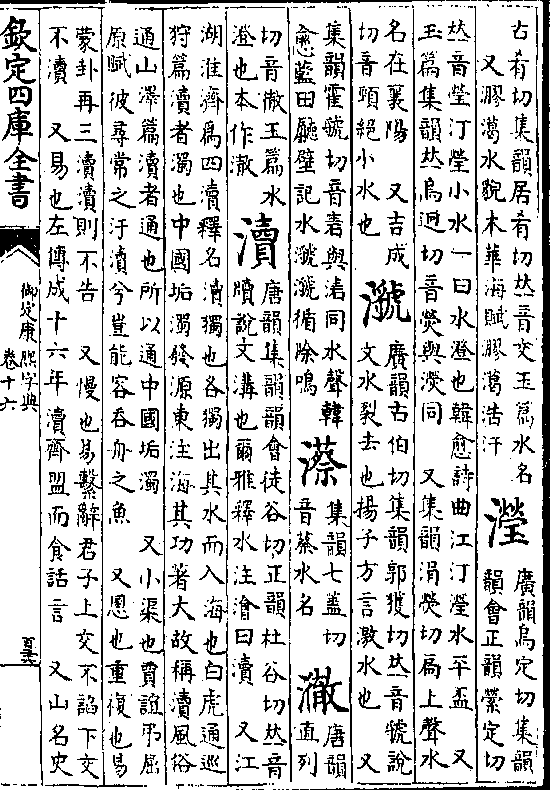 古肴切集韻居肴切𠀤音交玉篇水名
又膠㶀水貌木華海賦膠㶀浩汗
瀅
廣韻烏定切集韻
韻會正韻縈定切
𠀤音瑩汀瀅小水一曰水澄也韓愈詩曲江汀瀅水平盃 又
玉篇集韻𠀤烏迥切音熒與濙同 又集韻涓熒切扃上聲水
名在襄陽 又吉成
切音頸絕小水也
㶁
廣韻古伯切集韻郭獲切𠀤音虢說
文水裂去也揚子方言激水也 又
集韻霍虢切音砉與湱同水聲韓
愈藍田廳壁記水㶁㶁循除鳴
㵽
集韻七蓋切
音蔡水名
唐韻
直列
切音徹玉篇水
澄也本作澈
瀆
唐韻集韻韻會徒谷切正韻杜谷切𠀤音
牘說文溝也爾雅釋水注澮曰瀆 又江
湖淮濟爲四瀆釋名瀆獨也各獨出其水而入海也白虎通巡
狩篇瀆者濁也中國垢濁發源東注海其功著大故稱瀆風俗
通山澤篇瀆者通也所以通中國垢濁 又小渠也賈誼弔屈
原賦彼尋常之汙瀆兮豈能容吞舟之魚 又慁也重復也易
蒙卦再三瀆瀆則不告 又慢也易繫辭君子上交不諂下交
不瀆 又易也左傳成十六年瀆齊盟而食話言 又山名史
欽定四庫全書
御定康熙字典
卷十六